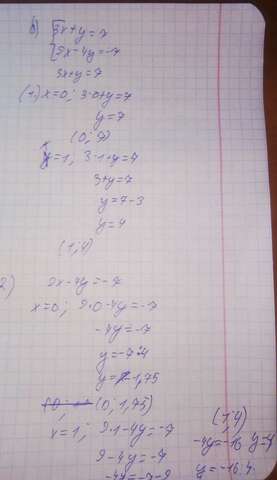 б) [3x+y=7
[9x-4y=-7
3x+y=7
(1) x=0; 3·0+y=7
y=7
(0; 7)
x=1; 3·1+y=7
3+y=7
y=7-3
y=4
(1;4)
2) 9x-4y=-7
x=0; 9·0-4y=-7
-4y=-7
y=-7:4
y=-1,75
(0; 1,75)
x=1; 9·1-4y=-7
9-4y=-7
-4y=-7-9
(1;4)
-4y=-16 y=4
y=-16:4